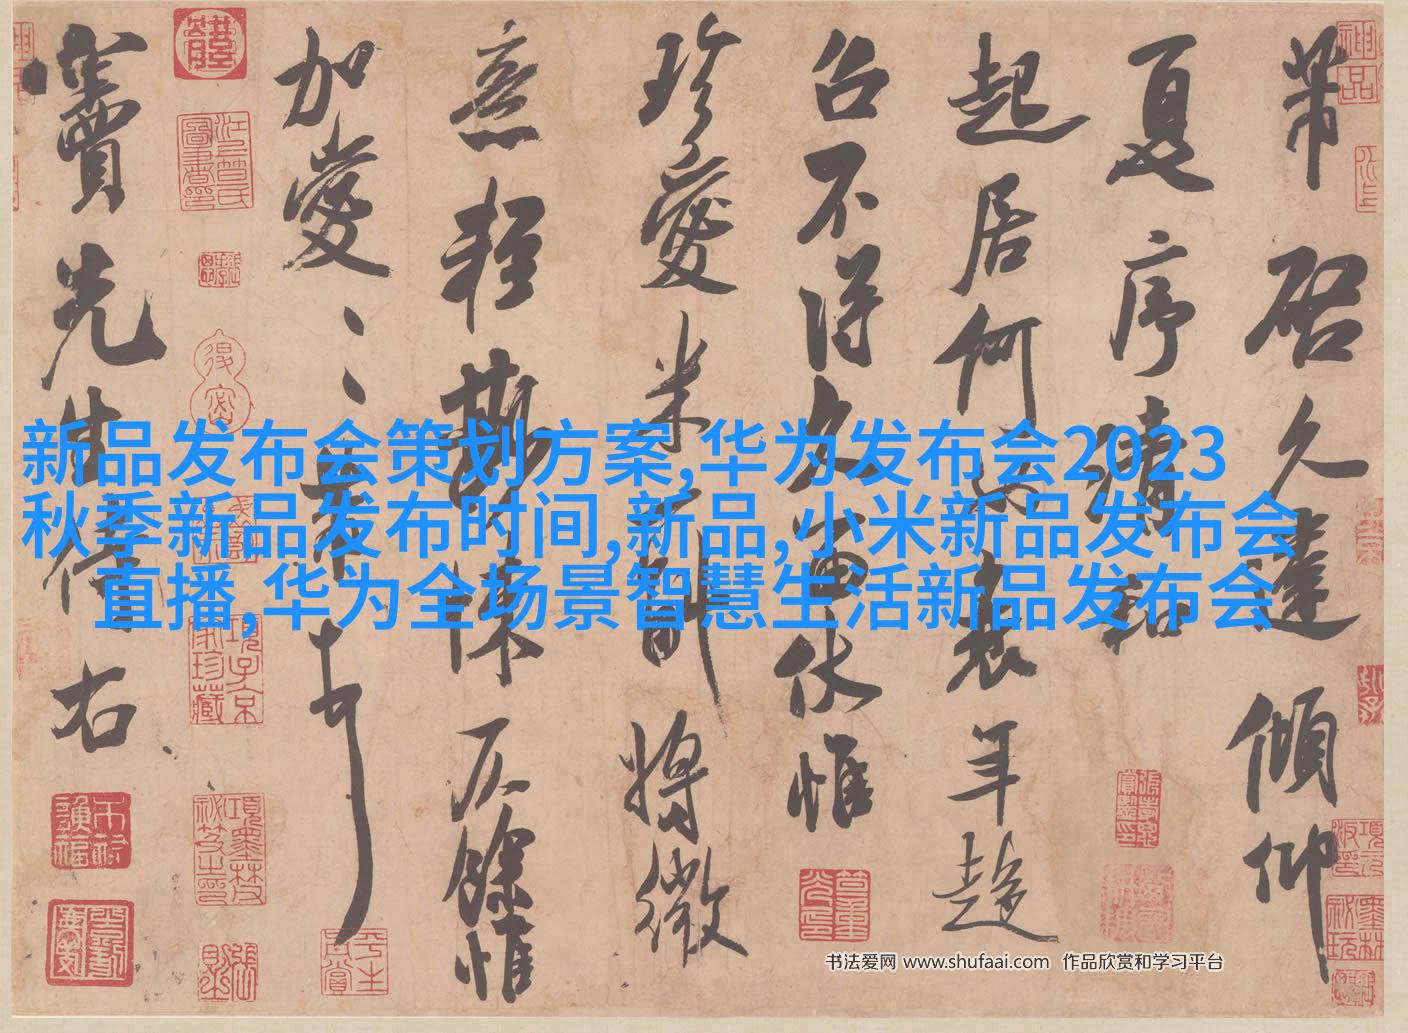 芾啓久違傾仰
夏序清和
起居何如衰年趍
召不得久留伏惟
珍愛米一副將微
意輕悚仄餘惟
加愛〻〻芾頓首
竇先生侍右
新品发布会策划方案,华为发布会2023
秋季新品发布时间,新品,小米新品发布会
直播,华为全场景智慧生活新品发布会
书法爱网 www.shufaai.com 作品欣赏和学习平台